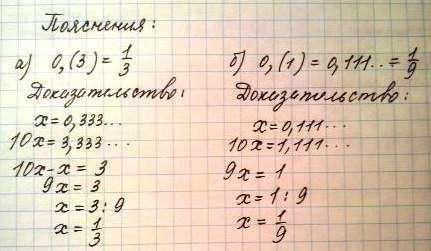 Пояснения:
а) 0,(3) = 1/3
Доказательство:
x = 0,333...
10x = 3,333...
10x-x = 3
9x = 3
x = 3 : 9
x = 1/3
б) 0,(1) = 0,111.. = 1/9
Доказательство:
x = 0,111...
10x = 1,111...
9x = 1
x = 1 : 9
x = 1/9